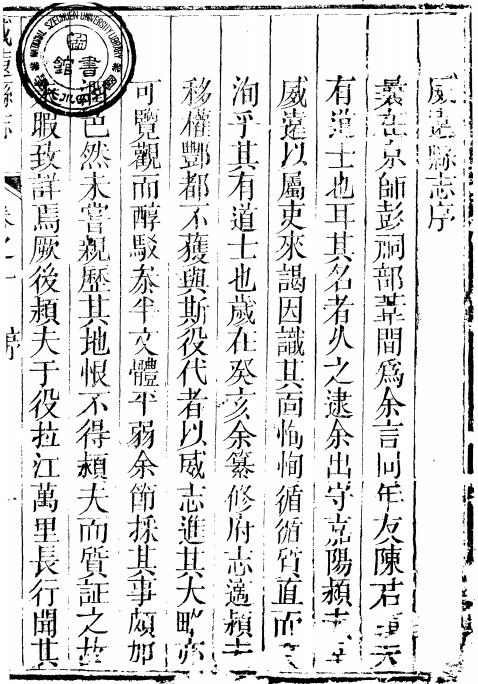 威遠縣志序
曩在京師彭祠部葦間爲余言同年友陳君穎夫
有道士也耳其名者久之逮余出守嘉陽穎夫
威遠以屬吏來謁因識其面恂恂循循質直而
洵乎其有道士也歲在癸亥余纂修府志適穎夫
移權酆都不獲與斯役代者以威志進其大略亦
可覽觀而醇駁叅半文體平弱余節採其事頗加
潤色然未嘗親歷其地恨不得穎夫而質証之故
暇致詳焉厥後穎夫于役拉江萬里長行聞其
威遠縣志
卷之一
序
NATIONAL SZECHUEN UNIVERSITY LIBRARY
圖書館